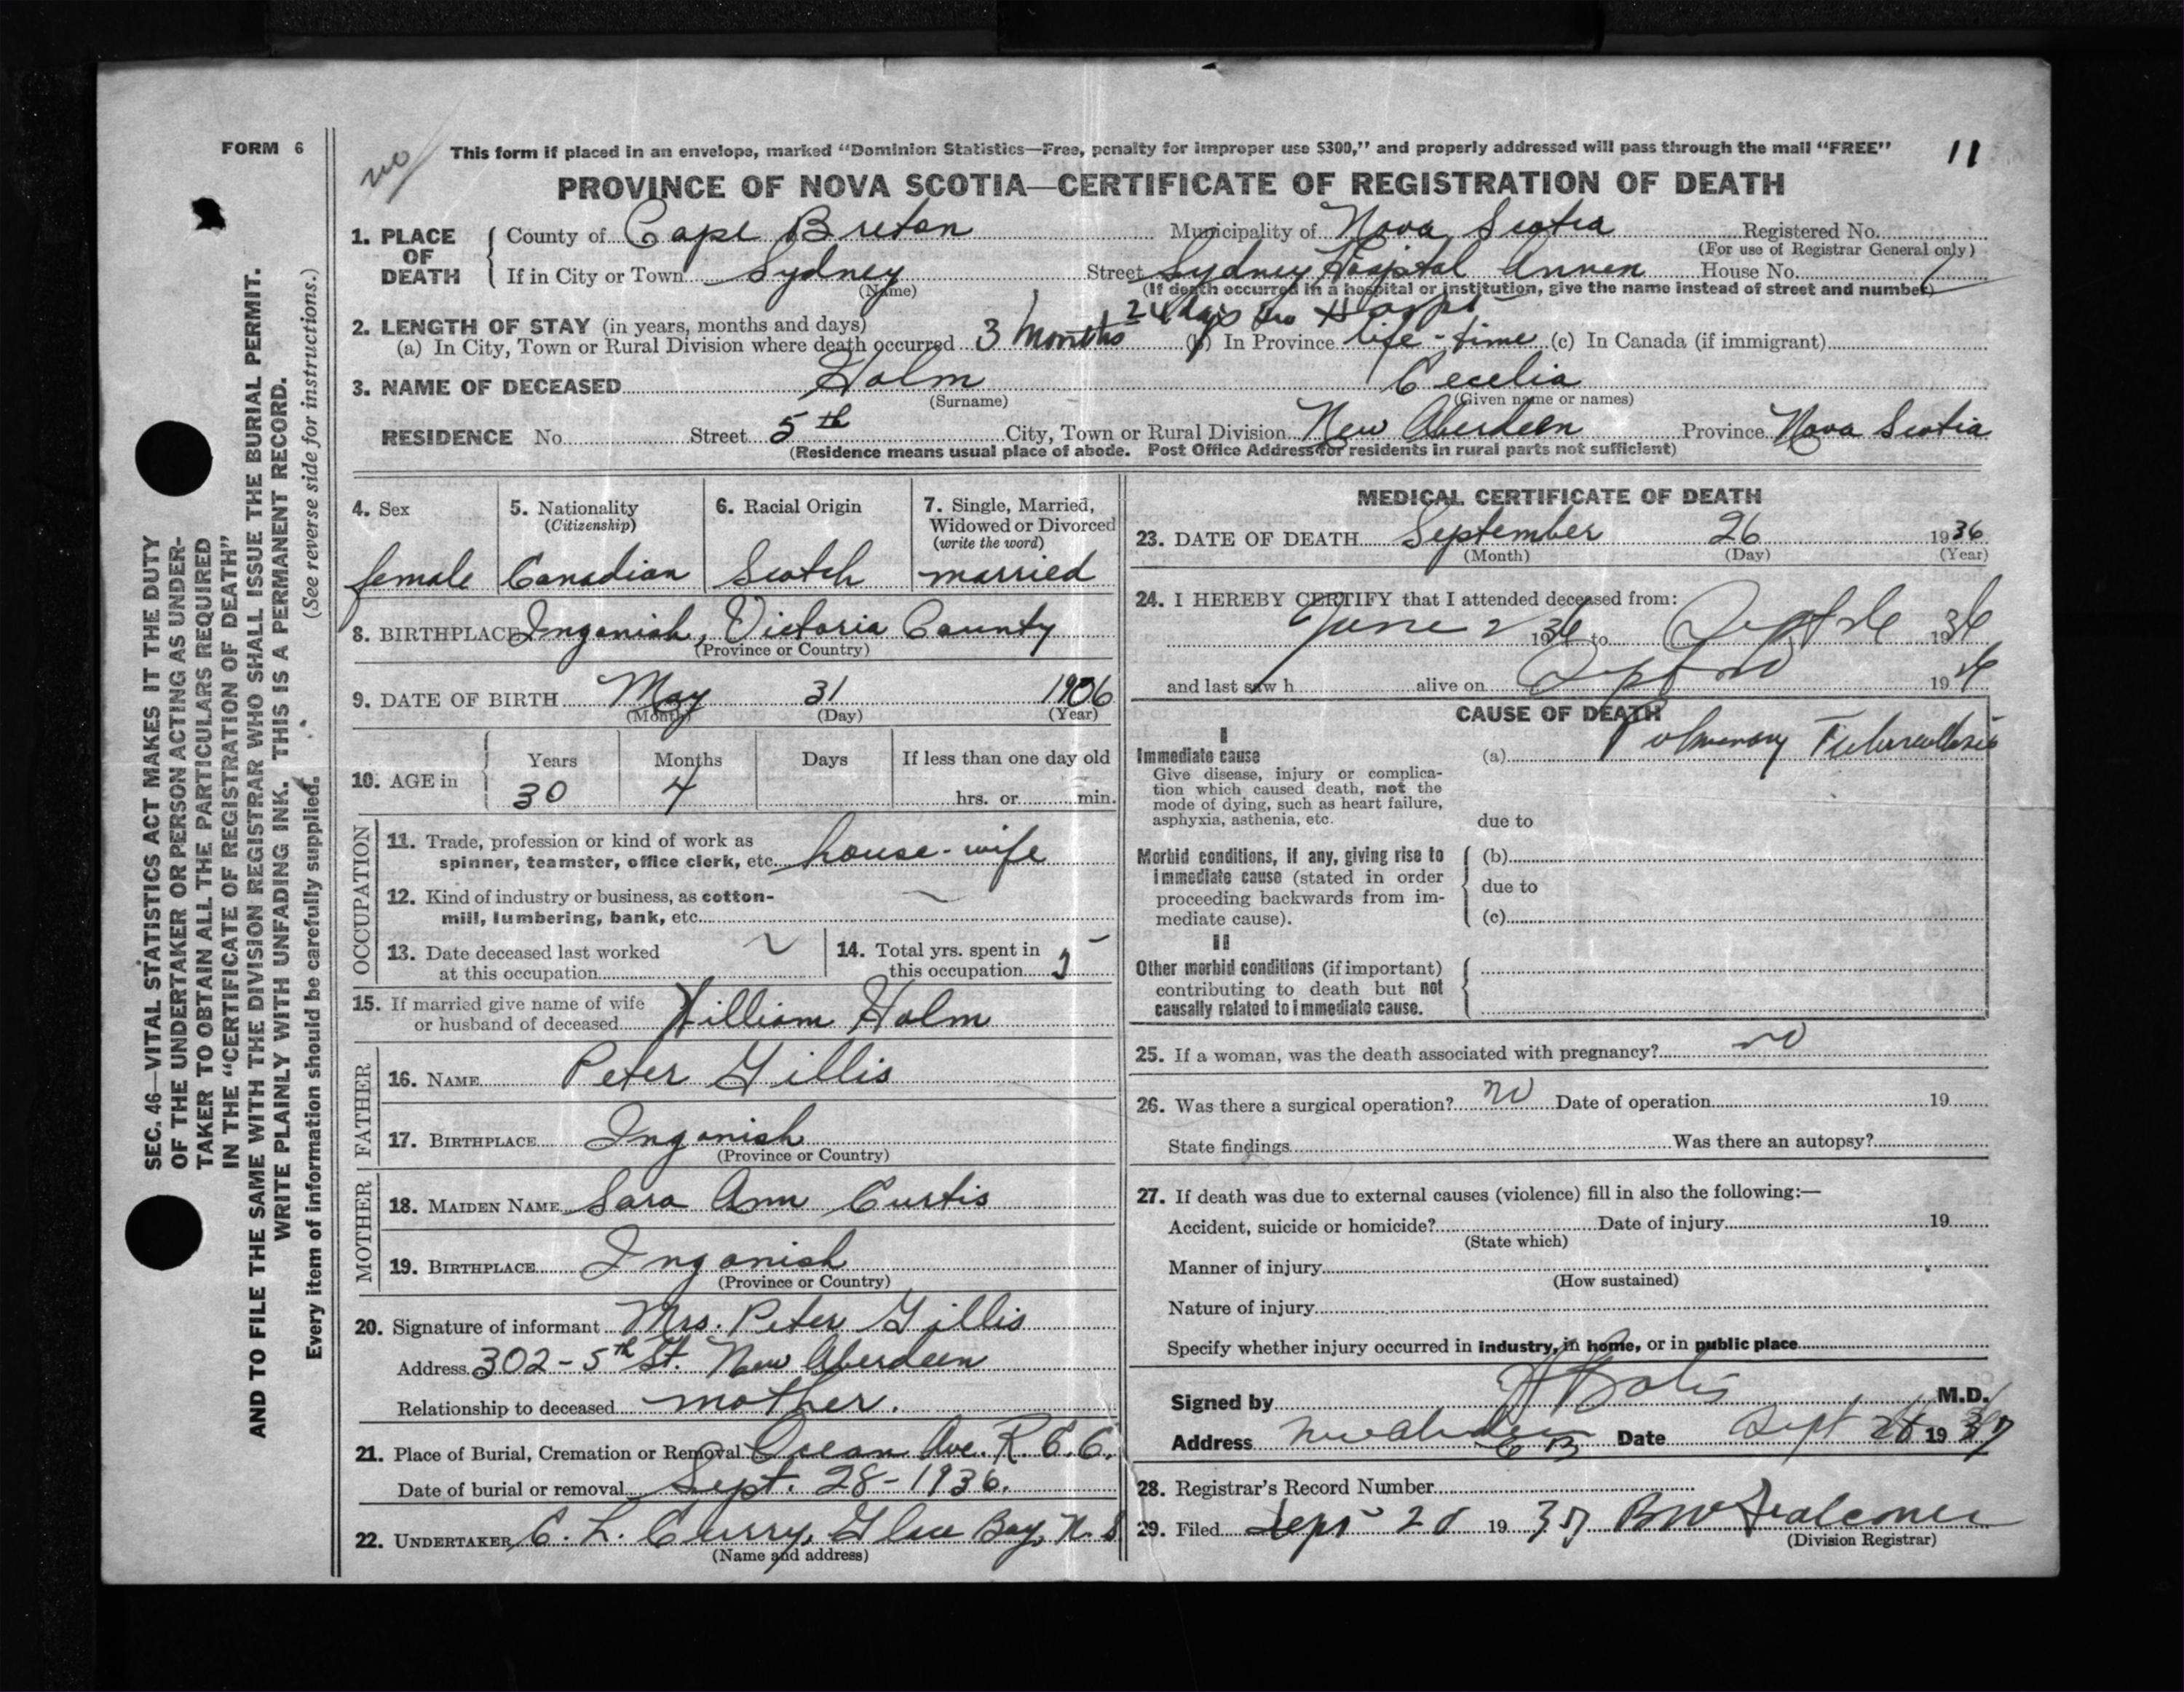 FORM 6
no
This form if placed in an envelope, marked “Dominion Statistics—Free, penalty for improper use $300,” and properly addressed will pass through the mail “FREE”
11
PROVINCE OF NOVA SCOTIA—CERTIFICATE OF REGISTRATION OF DEATH
1. PLACE OF DEATH
County of Cape Breton Municipality of Nova Scotia Registered No.
(For use of Registrar General only)
If in City or Town Sydney Street Sydney Hospital Annex House No.
(Name) (If death occurred in a hospital or institution, give the name instead of street and number)
2. LENGTH OF STAY (in years, months and days)
(a) In City, Town or Rural Division where death occurred 3 months 24 days in Hosp. (b) In Province life-time (c) In Canada (if immigrant)
3. NAME OF DECEASED Holm Cecelia
(Surname) (Given name or names)
RESIDENCE No. Street 5th City, Town or Rural Division New Aberdeen Province Nova Scotia
(Residence means usual place of abode. Post Office Address for residents in rural parts not sufficient)
4. Sex
female
5. Nationality
(Citizenship)
Canadian
6. Racial Origin
Scotch
7. Single, Married,
Widowed or Divorced
(write the word)
married
8. BIRTHPLACE Ingonish, Victoria County
(Province or Country)
9. DATE OF BIRTH May 31 1906
(Month) (Day) (Year)
10. AGE in
Years Months Days If less than one day old
30 4 hrs. or min.
OCCUPATION
11. Trade, profession or kind of work as
spinner, teamster, office clerk, etc. house-wife
12. Kind of industry or business, as cotton-
mill, lumbering, bank, etc.
13. Date deceased last worked
at this occupation
14. Total yrs. spent in
this occupation 5
15. If married give name of wife
or husband of deceased William Holm
FATHER
16. NAME Peter Gillis
17. BIRTHPLACE Ingonish
(Province or Country)
MOTHER
18. MAIDEN NAME Sara Ann Curtis
19. BIRTHPLACE Ingonish
(Province or Country)
20. Signature of informant Mrs. Peter Gillis
Address 302-5th St. New Aberdeen
Relationship to deceased mother.
21. Place of Burial, Cremation or Removal Ocean Ave. R.C.C.
Date of burial or removal Sept. 28-1936.
22. UNDERTAKER C. L. Curry, Glace Bay, N.S
(Name and address)
MEDICAL CERTIFICATE OF DEATH
23. DATE OF DEATH September 26 1936
(Month) (Day) (Year)
24. I HEREBY CERTIFY that I attended deceased from:
June 2 1936 to Sept 26 1936
and last saw h alive on Sept 19
CAUSE OF DEATH
I
Immediate cause
Give disease, injury or complica-
tion which caused death, not the
mode of dying, such as heart failure,
asphyxia, asthenia, etc.
(a) Pulmonary Tuberculosis
due to
Morbid conditions, if any, giving rise to
immediate cause (stated in order
proceeding backwards from im-
mediate cause).
(b)
due to
(c)
II
Other morbid conditions (if important)
contributing to death but not
causally related to immediate cause.
25. If a woman, was the death associated with pregnancy? no
26. Was there a surgical operation? no Date of operation 19
State findings Was there an autopsy?
27. If death was due to external causes (violence) fill in also the following:—
Accident, suicide or homicide? Date of injury 19
(State which)
Manner of injury
(How sustained)
Nature of injury
Specify whether injury occurred in industry, in home, or in public place
Signed by M.D.
Address Date Sept 19
28. Registrar's Record Number
29. Filed Sept 19 Falconer
(Division Registrar)
SEC. 46—VITAL STATISTICS ACT MAKES IT THE DUTY
OF THE UNDERTAKER OR PERSON ACTING AS UNDER-
TAKER TO OBTAIN ALL THE PARTICULARS REQUIRED
IN THE “CERTIFICATE OF REGISTRATION OF DEATH”
AND TO FILE THE SAME WITH THE DIVISION REGISTRAR WHO SHALL ISSUE THE BURIAL PERMIT.
WRITE PLAINLY WITH UNFADING INK. THIS IS A PERMANENT RECORD.
Every item of information should be carefully supplied. (See reverse side for instructions.)